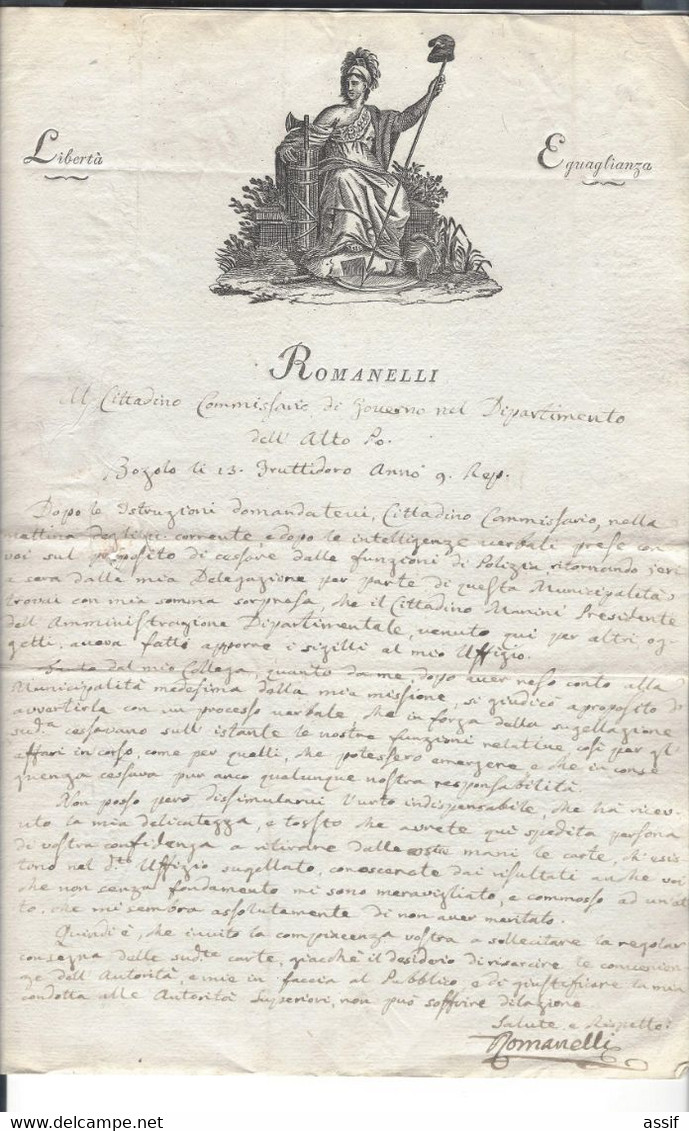 Libertà
Eguaglianza
ROMANELLI
Al Cittadino Commissario di Governo nel Dipartimento
dell'Alto Po.
Bozolo li 13. Fruttidoro Anno 9. Rep.
Dopo le Istruzioni domandatevi, Cittadino Commissario, nella
mattina corrente, e dopo le intelligenze verbali prese con
voi sul proposito di cessare dalle funzioni di Polizia ritornando jeri
a sera dalla mia Delegazione per parte di questa Municipalità
trovai con mia somma sorpresa, che il Cittadino Manini Presidente
dell'Amministrazione Dipartimentale, venuto qui per altri og-
getti, aveva fatto apporre i sigilli al mio Uffizio.
Tanto dal mio Collega, quanto da me, dopo aver reso conto alla
Municipalità medesima dalla mia missione, si giudicò a proposito d'
avvertirla con un processo verbale, che in forza della sugellazione
sud.a cessavano sull'istante le nostre funzioni relative, così per gl'
affari in corso, come per quelli, che potessero emergere e che in conse
guenza cessava pur anco qualunque nostra responsabilità.
Non posso però dissimularvi l'urto indispensabile, che ha ricev-
uto la mia delicatezza, e tosto che avrete qui spedita persona
di vostra confidenza a ritirare dalle mani le carte, ch'esis-
tono nel d.to Uffizio sugellato, conoscerete dai risultati anche voi
che non senza fondamento mi sono meravigliato, e commosso ad un'at
to, che mi sembra assolutamente di non aver meritato.
Quindi è, che invito la compiacenza vostra a sollecitare la regolar
consegna delle sud.te carte, giacchè il desiderio di risarcire le convenien
ze dell'Autorità, e mie in faccia al Pubblico, e di giustificare la mia
condotta alle Autorità Superiori, non può soffrire dilazione.
Salute, e Rispetto:
Romanelli
assif